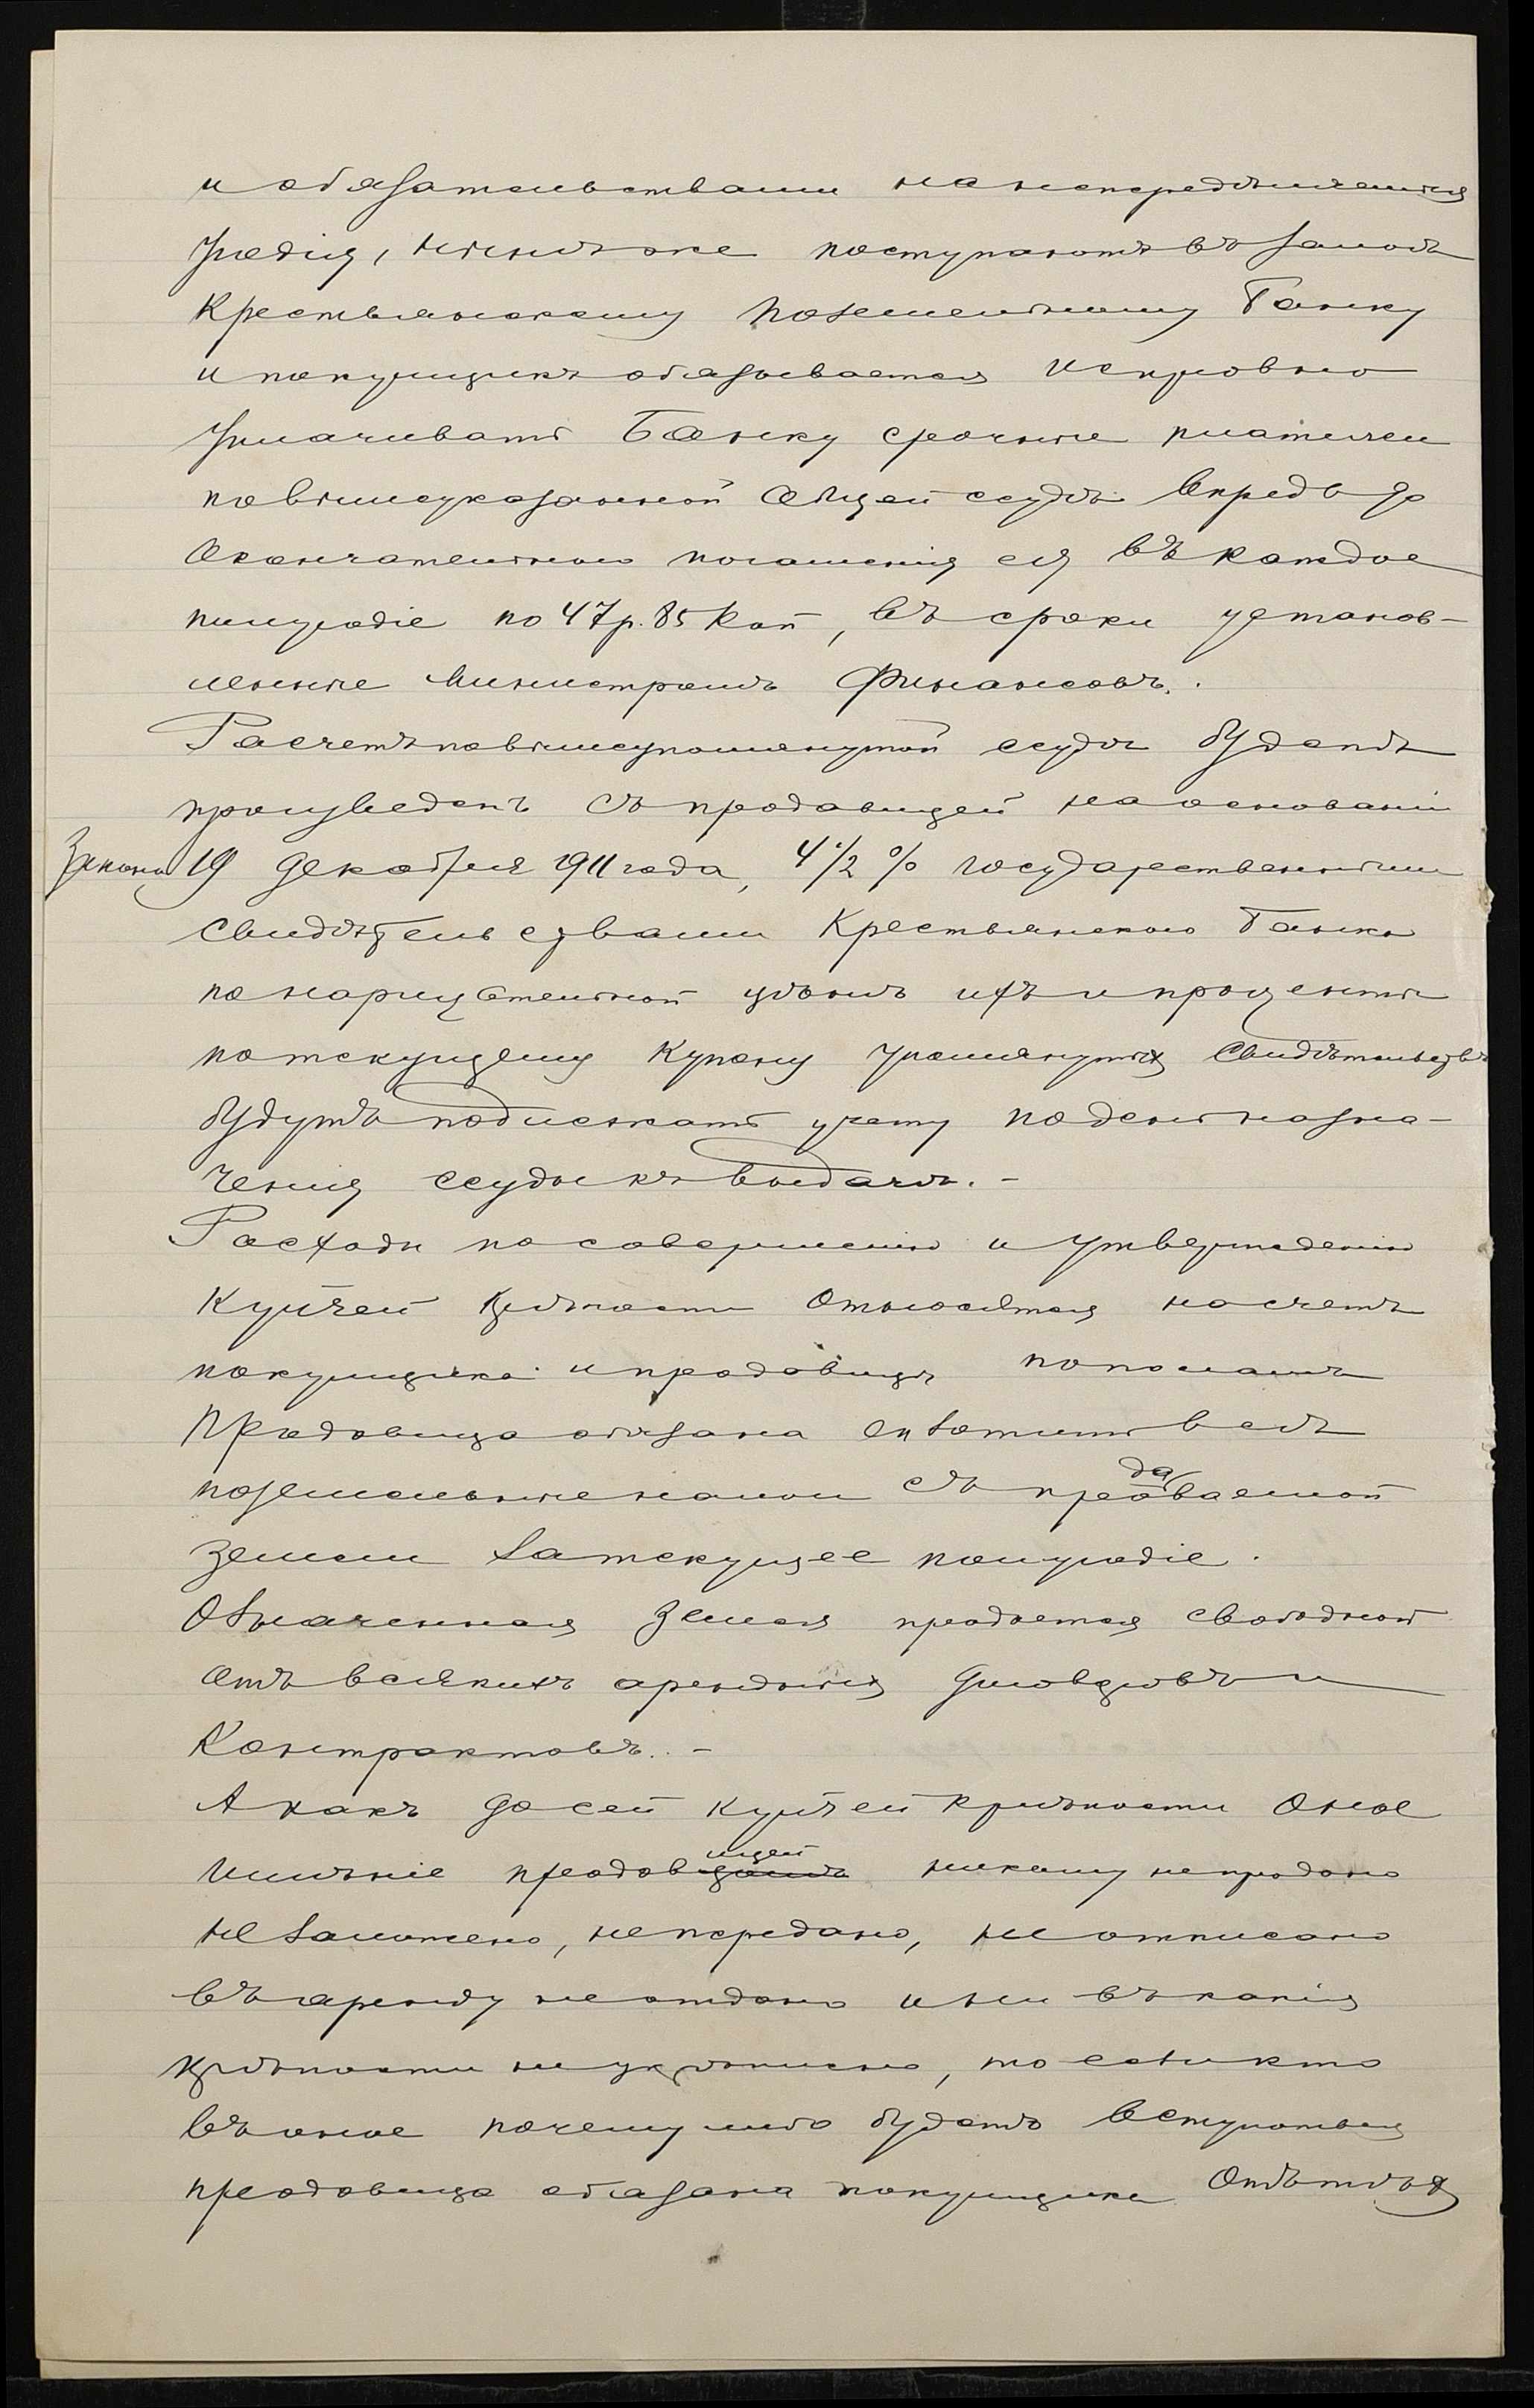 и обязательствами на непредѣленныя
угодія, нынѣ же поступаютъ въ залогъ
Крестьянскому Поземельному Банку
и покупщикъ обязывается исправно
уплачивать Банку срочные платежи
по вышеуказанной общей ссудѣ впредь до
окончательнаго погашенія ея въ каждое
полугодіе по 47 р. 85 коп, въ сроки установ-
ленные Министромъ Финансовъ.
Расчетъ по вышеупомянутой ссудѣ будетъ
произведенъ съ продавицей на основаніи
Закона 19 Декабря 1911 года, 4 1/2 % государственными
свидѣтельствами Крестьянскаго Банка
по нарицательной цѣнѣ ихъ и проценты
по текущему купону упомянутыхъ свидѣтельствъ
будутъ подлежать учету по день назна-
ченія ссуды къ выдачѣ. -
Расходы по совершенію и утвержденію
купчей крѣпости относятся на счетъ
покупщика и продавицы пополамъ
Продавица обязана внести всѣ
поземельные налоги съ продаваемой
земли за текущее полугодіе.
Означенная земля продается свободной
отъ всякихъ арендныхъ договоровъ и
контрактовъ. -
А какъ до сей купчей крѣпости оное
имѣніе продавицей никому не продано
не заложено, не передано, не отписано
въ аренду не отдано и ни въ какія
крѣпости не укрѣплено, то если кто
въ оное почему либо будетъ вступаться
продавица обязана покупщика отъ тѣхъ